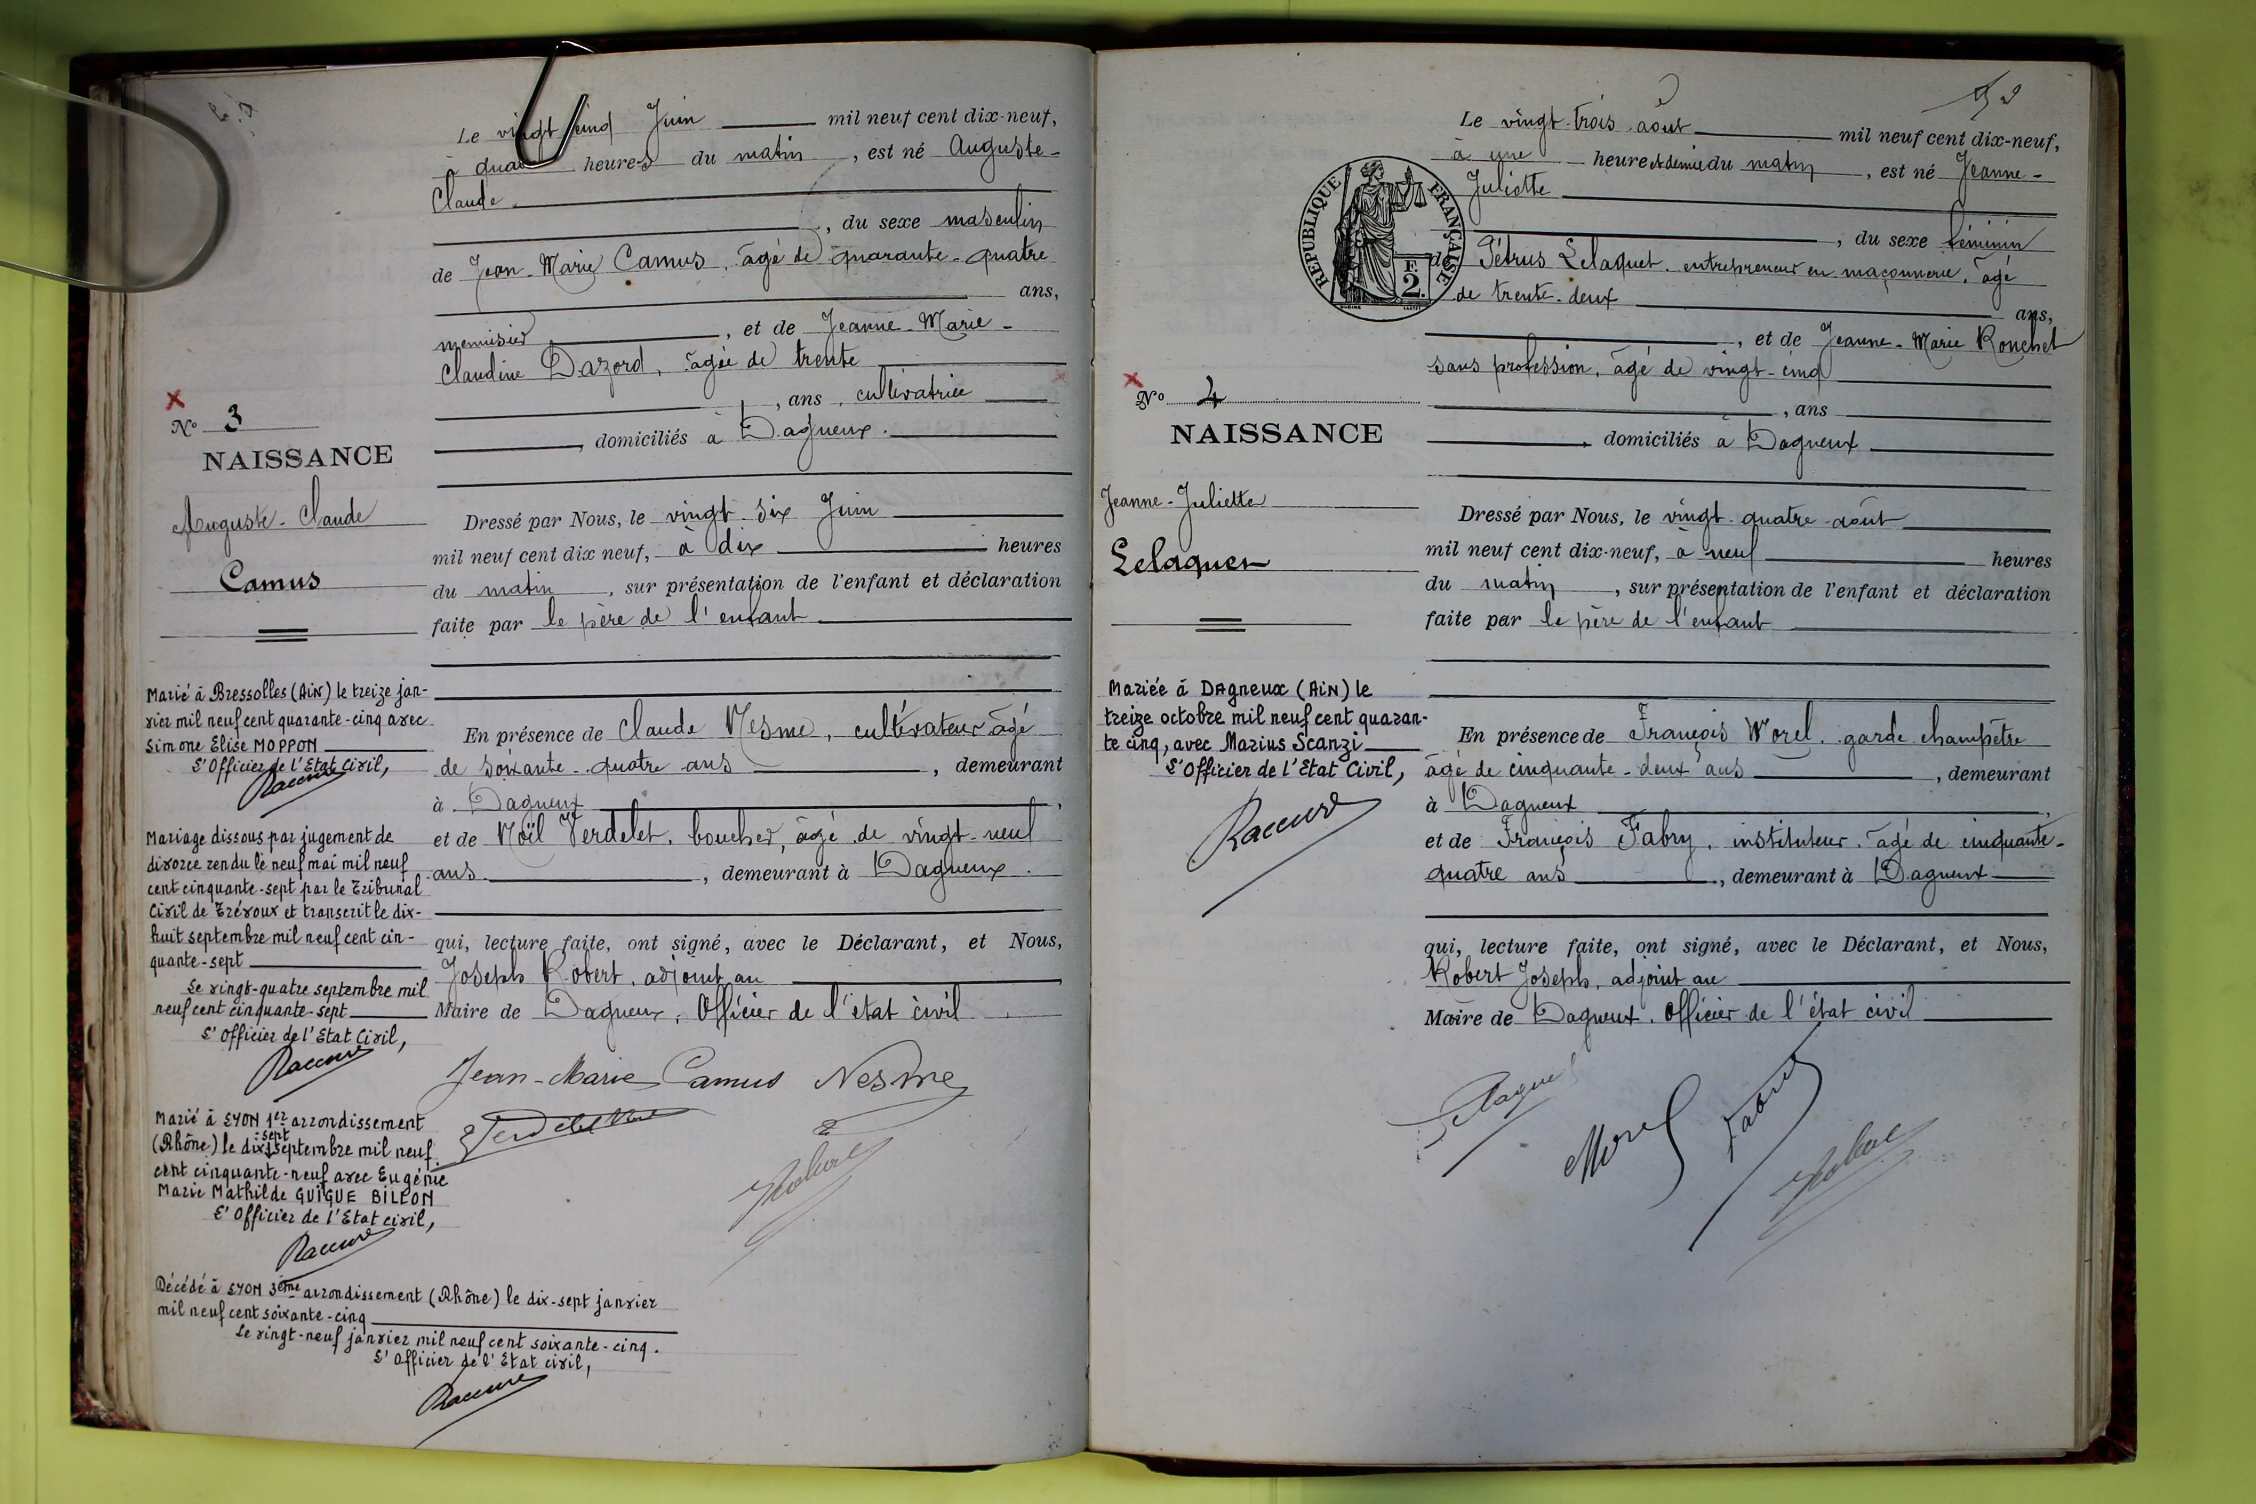 Le vingt cinq Juin mil neuf cent dix-neuf,
à heures du matin, est né Auguste-
Claude
, du sexe masculin
de Jean-Marie Camus, âgé de quarante-quatre
ans,
menuisier, et de Jeanne-Marie-
Claudine Dazord, âgée de trente
, ans, cultivatrice
, domiciliés à Dagneux.
N° 3
NAISSANCE
Auguste-Claude
Camus
Dressé par Nous, le vingt six Juin
mil neuf cent dix neuf, à dix heures
du matin, sur présentation de l'enfant et déclaration
faite par le père de l'enfant
En présence de Claude Nesme, cultivateur âgé
de soixante-quatre ans, demeurant
à Dagneux,
et de Noël Verdelet, boucher, âgé de vingt-neuf
ans, demeurant à Dagneux.
qui, lecture faite, ont signé, avec le Déclarant, et Nous,
Joseph Robert, adjoint au
Maire de Dagneux, Officier de l'état civil
Jean-Marie Camus Nesme
Marié à Bressolles (Ain) le treize jan-
vier mil neuf cent quarante-cinq avec
Simone Elise MOPPON
L'Officier de l'Etat Civil,
Raccurt
Mariage dissous par jugement de
divorce rendu le neuf mai mil neuf
cent cinquante-sept par le Tribunal
Civil de Trévoux et transcrit le dix-
huit septembre mil neuf cent cin-
quante-sept
Le vingt-quatre septembre mil
neuf cent cinquante-sept
L'Officier de l'Etat Civil,
Raccurt
Marié à LYON 1er arrondissement
(Rhône) le dix-sept septembre mil neuf
cent cinquante-neuf avec Eugénie
Marie Mathilde GUIGUE BILLON
L'Officier de l'Etat civil,
Raccurt
Décédé à LYON 3ème arrondissement (Rhône) le dix-sept janvier
mil neuf cent soixante-cinq
Le vingt-neuf janvier mil neuf cent soixante-cinq.
L'Officier de l'Etat civil,
Raccurt
Le vingt-trois août mil neuf cent dix-neuf,
à une heure et demie du matin, est né Jeanne-
Juliette
, du sexe féminin
de Pétrus Lelaquet, entrepreneur en maçonnerie, âgé
de trente-deux ans,
, et de Jeanne-Marie Ronchet
sans profession, âgé de vingt-cinq
, ans
, domiciliés à Dagneux
RÉPUBLIQUE FRANÇAISE
F.
2.
N° 4
NAISSANCE
Jeanne-Juliette
Lelaquet
Dressé par Nous, le vingt-quatre août
mil neuf cent dix-neuf, à neuf heures
du matin, sur présentation de l'enfant et déclaration
faite par le père de l'enfant
En présence de François Morel, garde champêtre
âgé de cinquante-deux ans, demeurant
à Dagneux,
et de François Fabry, instituteur, âgé de cinquante-
quatre ans, demeurant à Dagneux
qui, lecture faite, ont signé, avec le Déclarant, et Nous,
Robert Joseph, adjoint au
Maire de Dagneux, Officier de l'état civil
Morel
Mariée à Dagneux (Ain) le
treize octobre mil neuf cent quaran-
te cinq, avec Marius Scanzi
L'Officier de l'Etat Civil,
Raccurt